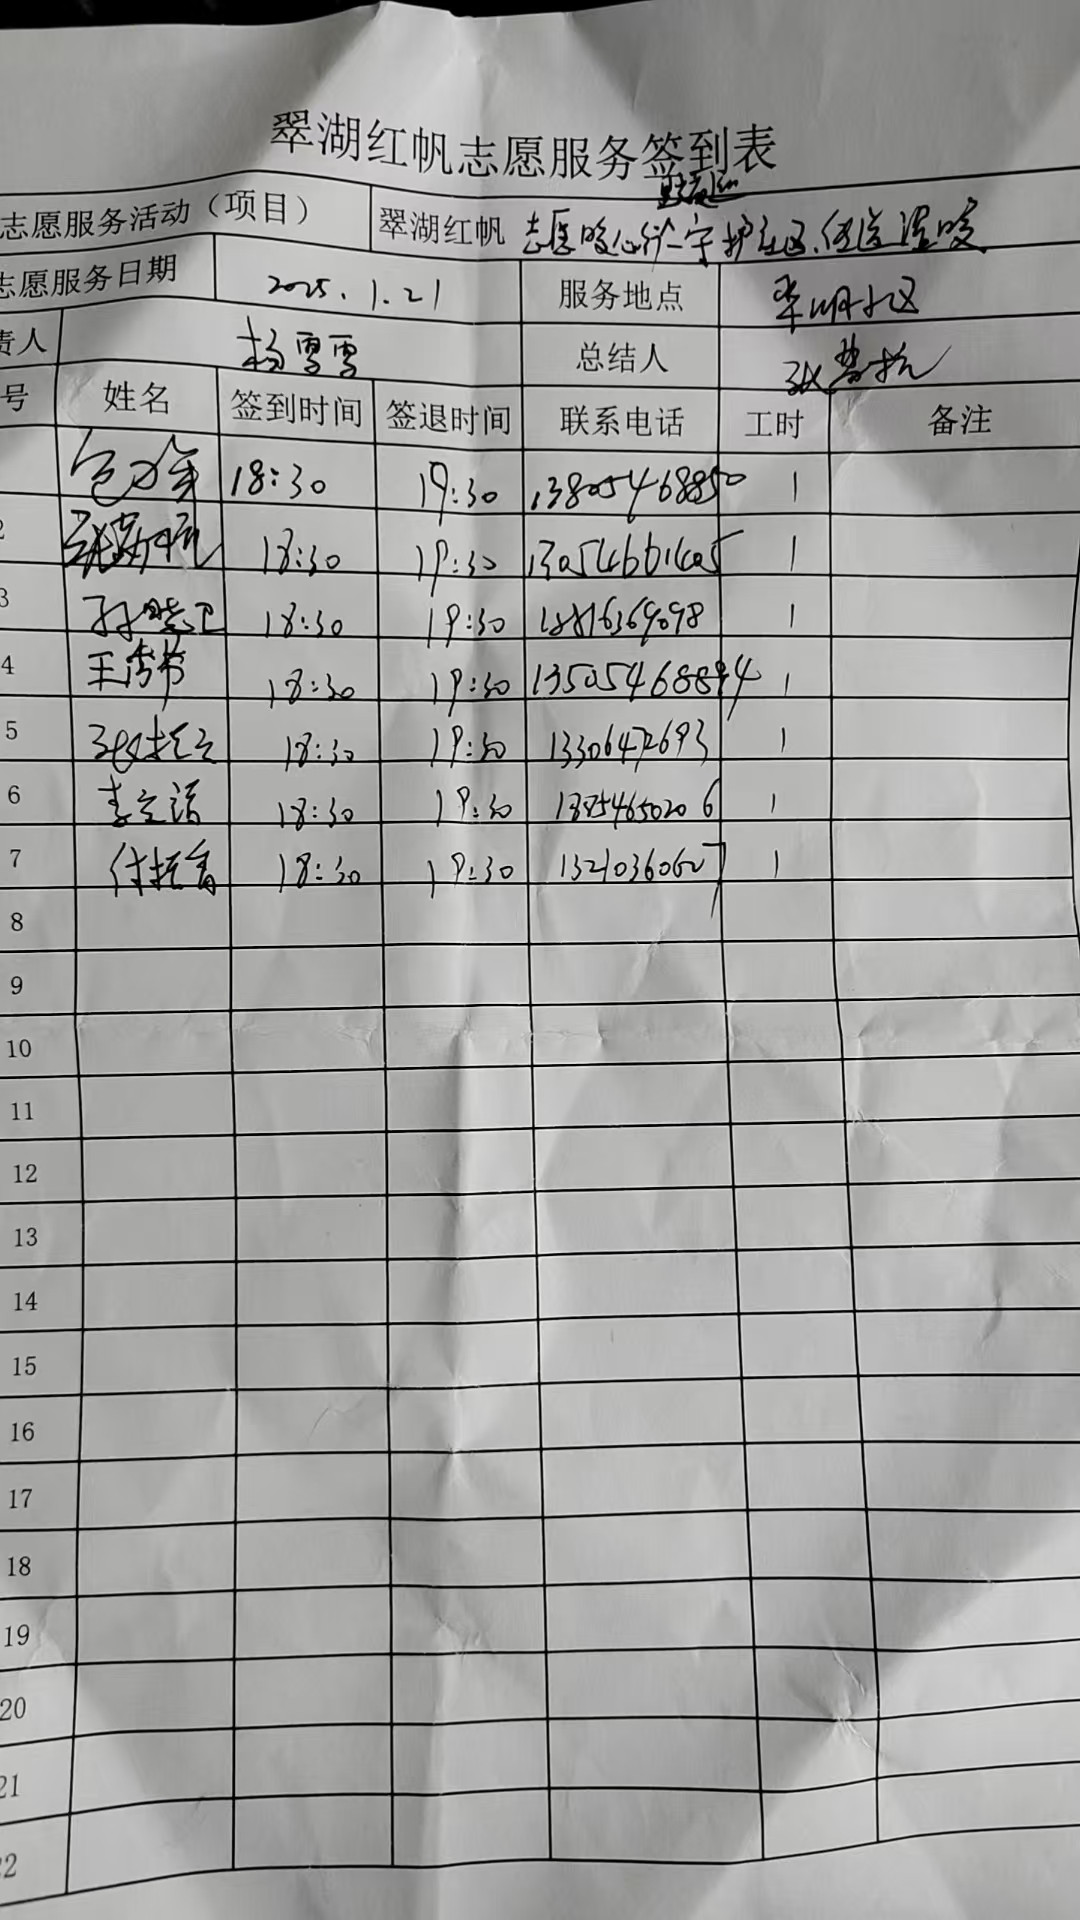 翠湖红帆志愿服务签到表
志愿服务活动（项目） 翠湖红帆 志愿暖心行—守护社区,传递温暖
志愿服务日期 2025.1.21 服务地点 翠湖小区
责人 杨雪雪 总结人
号 姓名 签到时间 签退时间 联系电话 工时 备注
18:30 19:30 13805468850 1
2 18:30 19:30 13054661405 1
3 孙晓卫 18:30 19:30 1 
4 王秀芳 18:30 19:30 13505468894 1
5 张振立 18:30 19:30 13306472693 1
6 李立 18:30 19:30 18854650206 1
7 付振香 18:30 19:30 13210360607 1
8
9
10
11
12
13
14
15
16
17
18
19
20
21
22